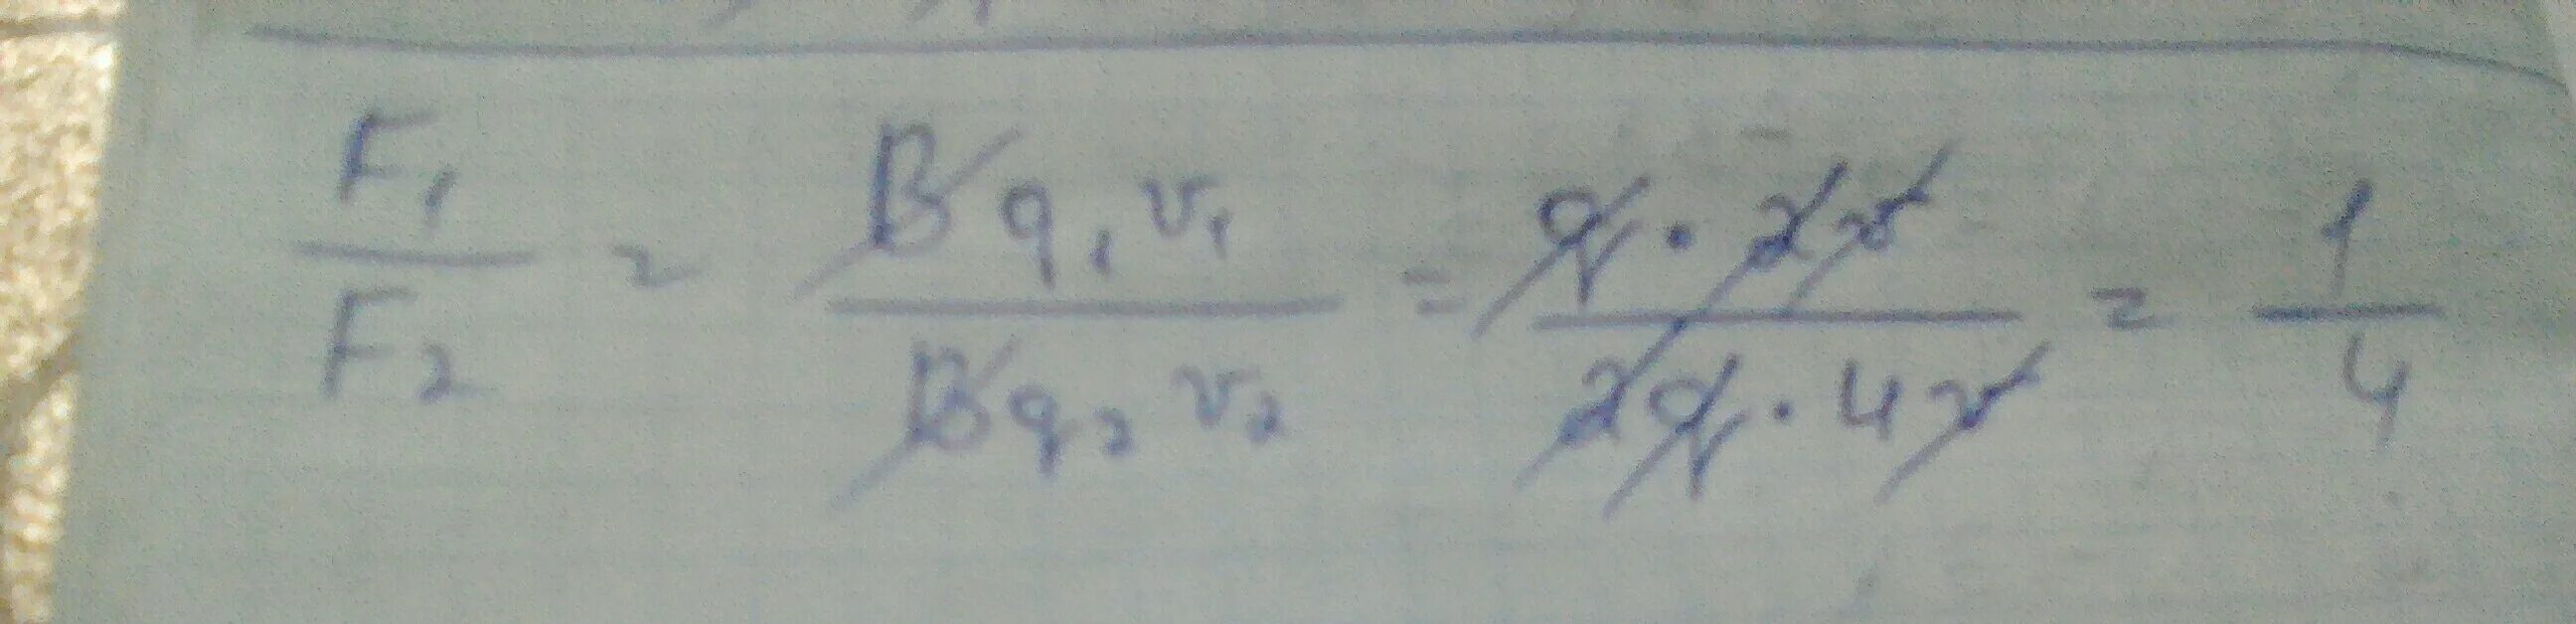 F₁/F₂ = Bq₁v₁/Bq₂v₂ = q·2v/2q·4v = 1/4